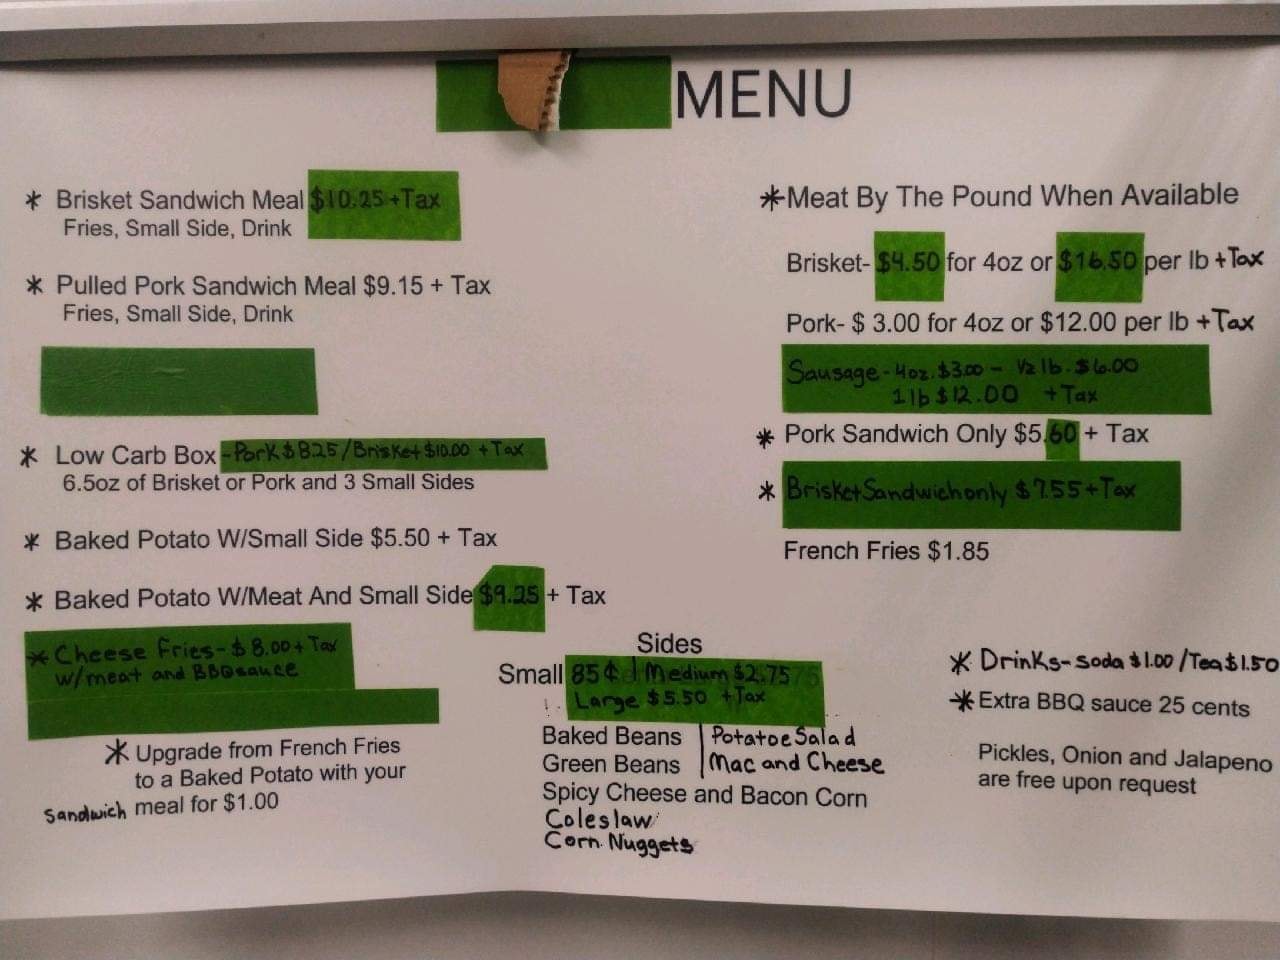 MENU
* Brisket Sandwich Meal $10.25 + Tax
Fries, Small Side, Drink
* Pulled Pork Sandwich Meal $9.15 + Tax
Fries, Small Side, Drink
* Low Carb Box - Pork $8.25/Brisket $10.00 + Tax
6.5oz of Brisket or Pork and 3 Small Sides
* Baked Potato W/Small Side $5.50 + Tax
* Baked Potato W/Meat And Small Side $9.25 + Tax
* Cheese Fries - $8.00 + Tax
w/meat and BBQ sauce
* Upgrade from French Fries
to a Baked Potato with your
sandwich meal for $1.00
Sides
Small 85¢ | Medium $2.75
Large $5.50 + Tax
Baked Beans | Potatoe Salad
Green Beans | Mac and Cheese
Spicy Cheese and Bacon Corn
Coleslaw
Corn Nuggets
* Meat By The Pound When Available
Brisket- $4.50 for 4oz or $16.50 per lb + Tax
Pork- $ 3.00 for 4oz or $12.00 per lb + Tax
Sausage - 4oz. $3.00 - 1/2 lb. $6.00
1 lb $12.00 + Tax
* Pork Sandwich Only $5.60 + Tax
* Brisket Sandwich only $7.55 + Tax
French Fries $1.85
* Drinks - soda $1.00 / Tea $1.50
* Extra BBQ sauce 25 cents
Pickles, Onion and Jalapeno
are free upon request